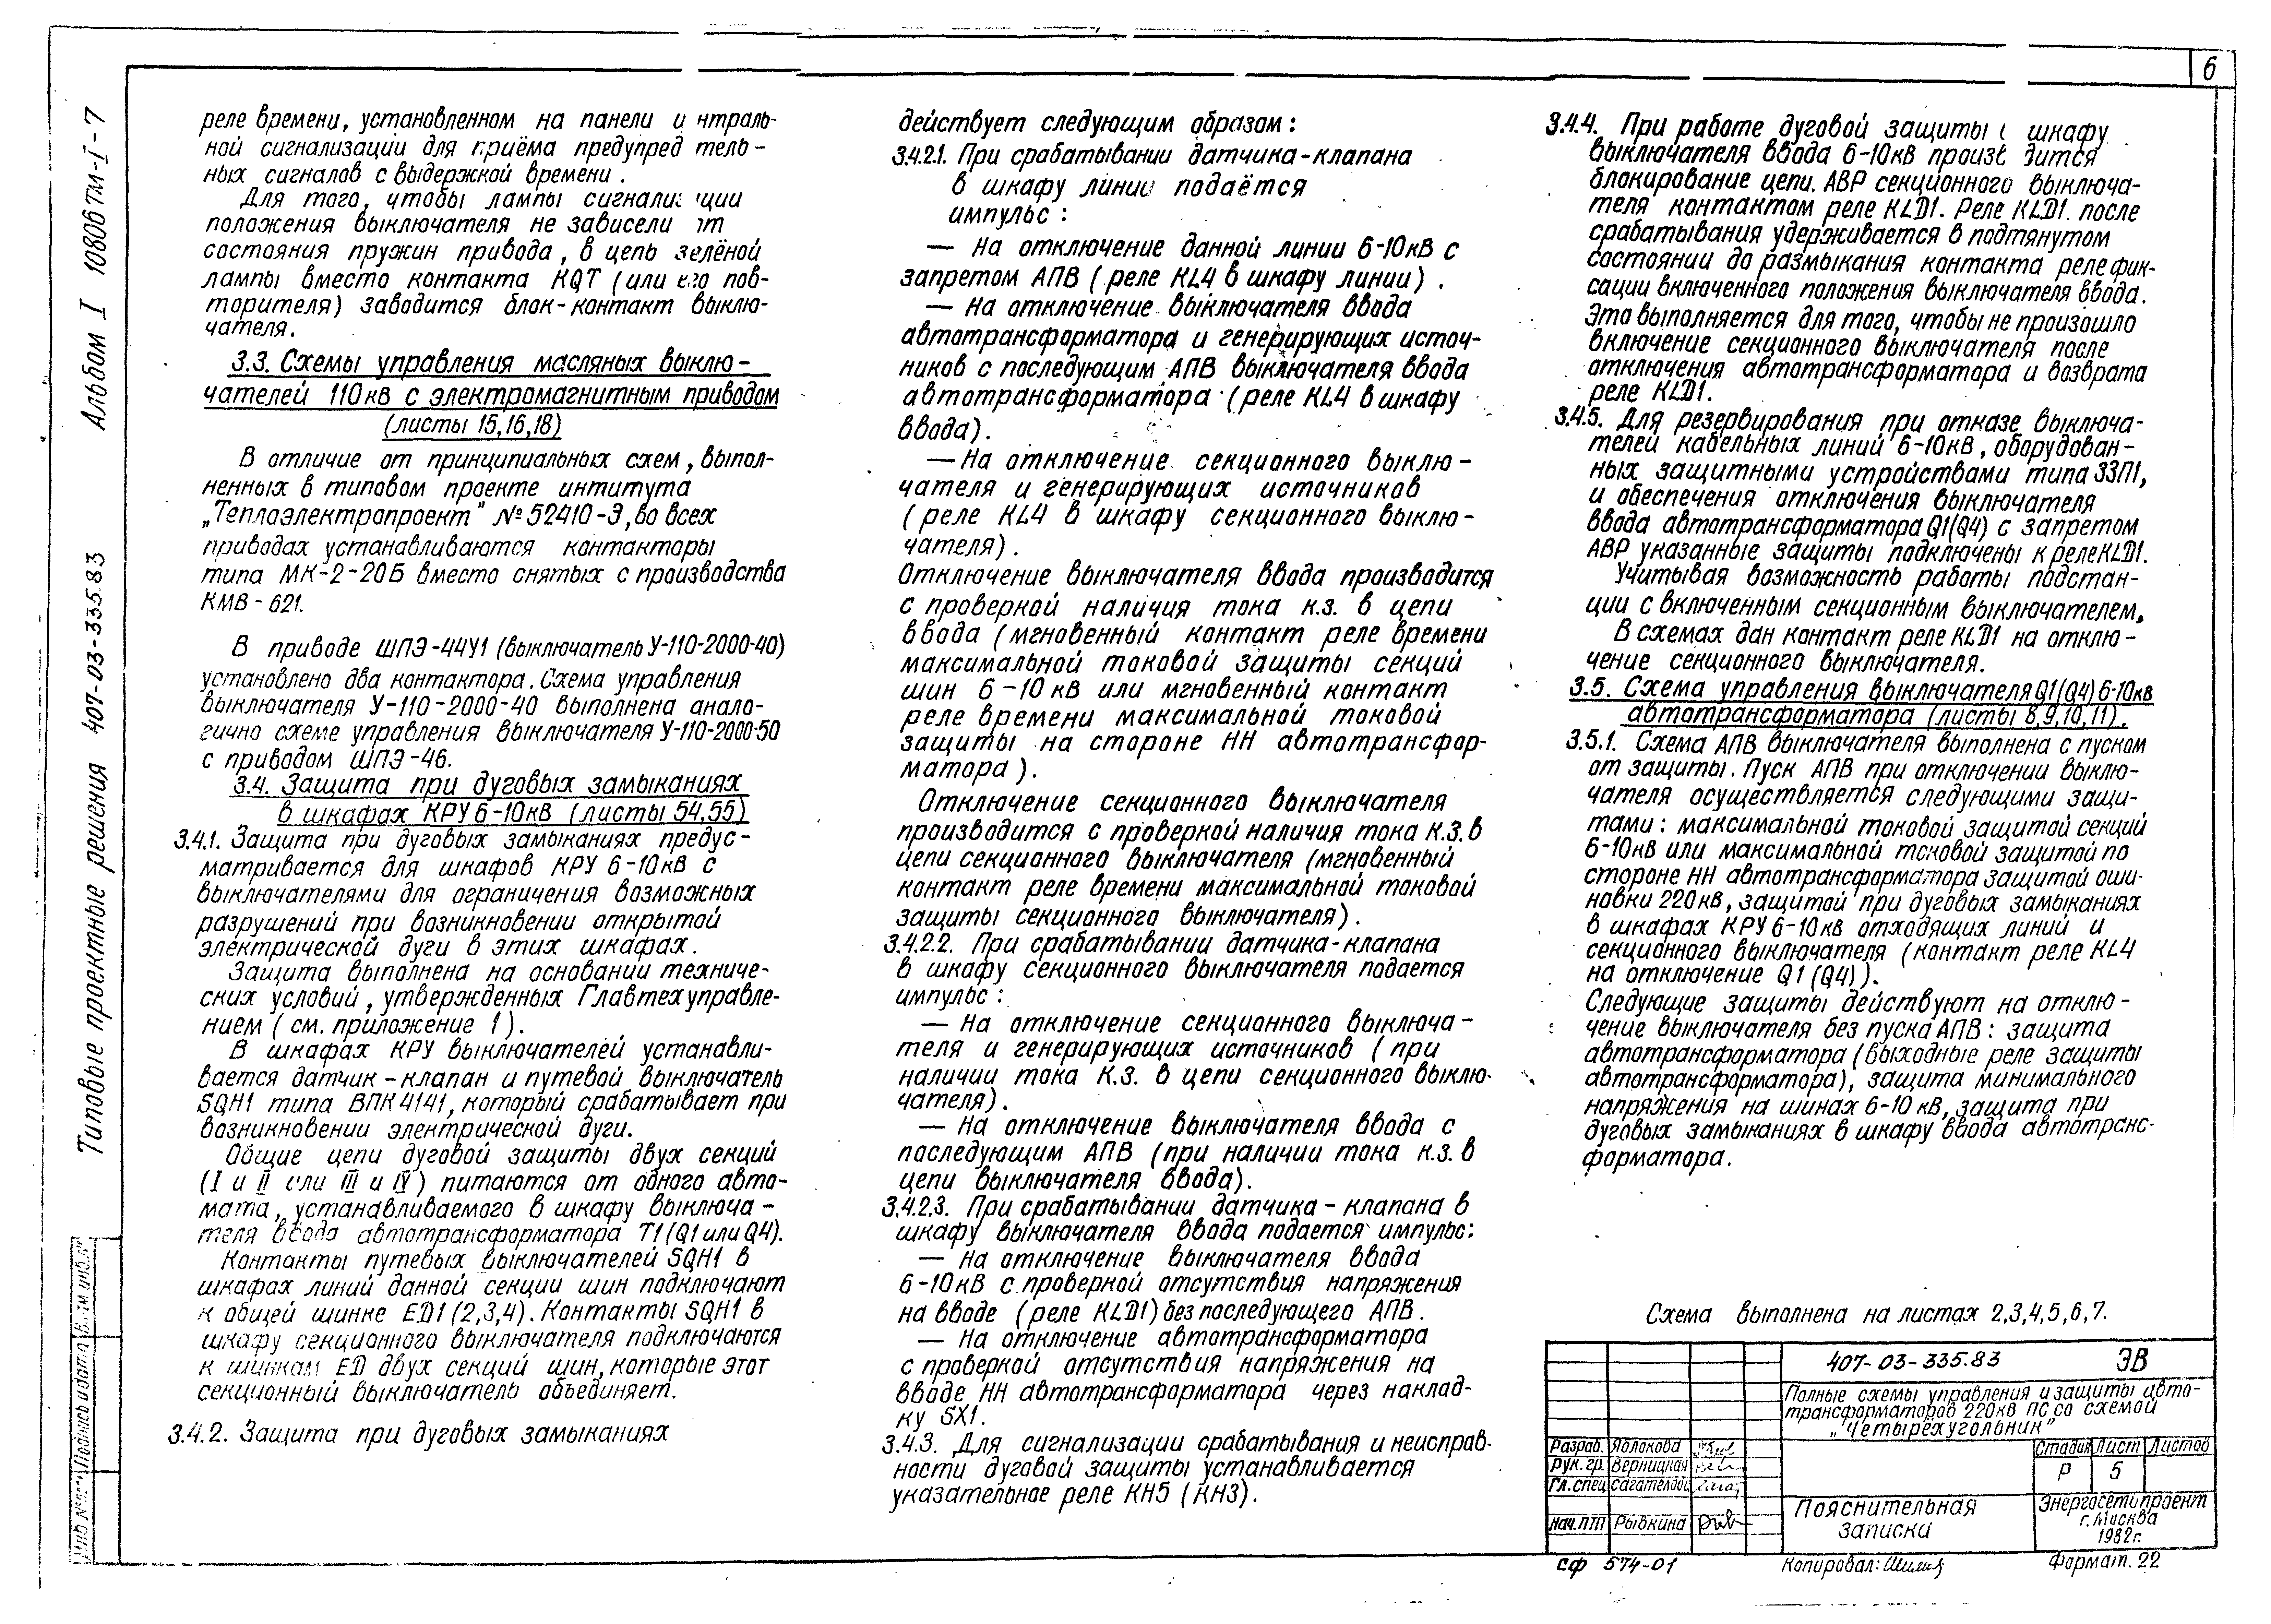 6
реле времени, установленном на панели ц нтраль-
ной сигнализации для приёма предупред тель-
ных сигналов с выдержкой времени.
Для того, чтобы лампы сигнализ ции
положения выключателя не зависели от
состояния пружин привода, в цепь зелёной
лампы вместо контакта KQT (или его пов-
торителя) заводится блок-контакт выклю-
чателя.
3.3. Схемы управления масляных выклю-
чателей 110кВ с электромагнитным приводом
(листы 15,16,18)
В отличие от принципиальных схем, выпол-
ненных в типовом проекте интитута
„Теплоэлектропроект" №52410-Э, во всех
приводах устанавливаются контакторы
типа МК-2-20Б вместо снятых с производства
КМВ-621.
В приводе ШПЭ-44У1 (выключатель У-110-2000-40)
установлено два контактора. Схема управления
выключателя У-110-2000-40 выполнена анало-
гично схеме управления выключателя У-110-2000-50
с приводом ШПЭ-46.
3.4. Защита при дуговых замыканиях
в шкафах КРУ 6-10кВ (листы 54,55)
3.4.1. Защита при дуговых замыканиях предус-
матривается для шкафов КРУ 6-10кВ с
выключателями для ограничения возможных
разрушений при возникновении открытой
электрической дуги в этих шкафах.
Защита выполнена на основании техниче-
ских условий, утвержденных Главтехуправле-
нием (см. приложение 1).
В шкафах КРУ выключателей устанавли-
вается датчик-клапан и путевой выключатель
SQH1 типа ВПК4141, который срабатывает при
возникновении электрической дуги.
Общие цепи дуговой защиты двух секций
(I и II или III и IV) питаются от одного авто-
мата, устанавливаемого в шкафу выключа-
теля ввода автотрансформатора Т1 (Q1 или Q4).
Контакты путевых выключателей SQH1 в
шкафах линий данной секции шин подключают
к общей шинке ED1 (2,3,4). Контакты SQH1 в
шкафу секционного выключателя подключаются
к шинкам ED двух секций шин, которые этот
секционный выключатель объединяет.
3.4.2. Защита при дуговых замыканиях
действует следующим образом:
3.4.2.1. При срабатывании датчика-клапана
в шкафу линии подаётся
импульс:
— На отключение данной линии 6-10кВ с
запретом АПВ (реле KL4 в шкафу линии).
— На отключение выключателя ввода
автотрансформатора и генерирующих источ-
ников с последующим АПВ выключателя ввода
автотрансформатора (реле KL4 в шкафу
ввода).
— На отключение секционного выклю-
чателя и генерирующих источников
(реле KL4 в шкафу секционного выклю-
чателя).
Отключение выключателя ввода производится
с проверкой наличия тока к.з. в цепи
ввода (мгновенный контакт реле времени
максимальной токовой защиты секций
шин 6-10 кВ или мгновенный контакт
реле времени максимальной токовой
защиты на стороне НН автотрансфор-
матора).
Отключение секционного выключателя
производится с проверкой наличия тока К.З. в
цепи секционного выключателя (мгновенный
контакт реле времени максимальной токовой
защиты секционного выключателя).
3.4.2.2. При срабатывании датчика-клапана
в шкафу секционного выключателя подается
импульс:
— На отключение секционного выключа-
теля и генерирующих источников (при
наличии тока К.З. в цепи секционного выклю-
чателя).
— На отключение выключателя ввода с
последующим АПВ (при наличии тока к.з. в
цепи выключателя ввода).
3.4.2.3. При срабатывании датчика-клапана в
шкафу выключателя ввода подается импульс:
— На отключение выключателя ввода
6-10кВ с проверкой отсутствия напряжения
на вводе (реле KLD1) без последующего АПВ.
— На отключение автотрансформатора
с проверкой отсутствия напряжения на
вводе НН автотрансформатора через наклад-
ку SX1.
3.4.3. Для сигнализации срабатывания и неисправ-
ности дуговой защиты устанавливается
указательное реле КН5 (КН3).
3.4.4. При работе дуговой защиты шкафу
выключателя ввода 6-10кВ произв дится
блокирование цепи. АВР секционного выключа-
теля контактом реле KLD1. Реле KLD1 после
срабатывания удерживается в подтянутом
состоянии до размыкания контакта реле фик-
сации включенного положения выключателя ввода.
Это выполняется для того, чтобы не произошло
включение секционного выключателя после
отключения автотрансформатора и возврата
реле KLD1.
3.4.5. Для резервирования при отказе выключа-
телей кабельных линий 6-10кВ, оборудован-
ных защитными устройствами типа ЗЗП1,
и обеспечения отключения выключателя
ввода автотрансформатора Q1(Q4) с запретом
АВР указанные защиты подключены к реле KLD1.
Учитывая возможность работы подстан-
ции с включенным секционным выключателем,
В схемах дан контакт реле KLD1 на отклю-
чение секционного выключателя.
3.5. Схема управления выключателя Q1(Q4) 6-10кВ
автотрансформатора (листы 8,9,10,11).
3.5.1. Схема АПВ выключателя выполнена с пуском
от защиты. Пуск АПВ при отключении выклю-
чателя осуществляется следующими защи-
тами: максимальной токовой защитой секций
6-10кВ или максимальной токовой защитой по
стороне НН автотрансформатора защитой оши-
новки 220кВ, защитой при дуговых замыканиях
в шкафах КРУ 6-10кВ отходящих линий и
секционного выключателя (контакт реле KL4
на отключение Q1 (Q4)).
Следующие защиты действуют на отклю-
чение выключателя без пуска АПВ: защита
автотрансформатора (выходные реле защиты
автотрансформатора), защита минимального
напряжения на шинах 6-10 кВ, защита при
дуговых замыканиях в шкафу ввода автотранс-
форматора.
Схема выполнена на листах 2,3,4,5,6,7.
407-03-335.83 ЭВ
Полные схемы управления и защиты авто-
трансформаторов 220кВ ПС со схемой
„Четырехугольник"
Стадия Лист Листов
Р 5
Разраб. Яблокова
Рук. гр. Верницкая
Гл.спец
Нач.ПТП Рывкина
Пояснительная
записка
Энергосетьпроект
г. Москва
1982г.
СФ 574-01
Копировал:
Формат. 22
Типовые проектные решения 407-03-335.83 Альбом I 10806ТМ-I-7
Подпись и дата